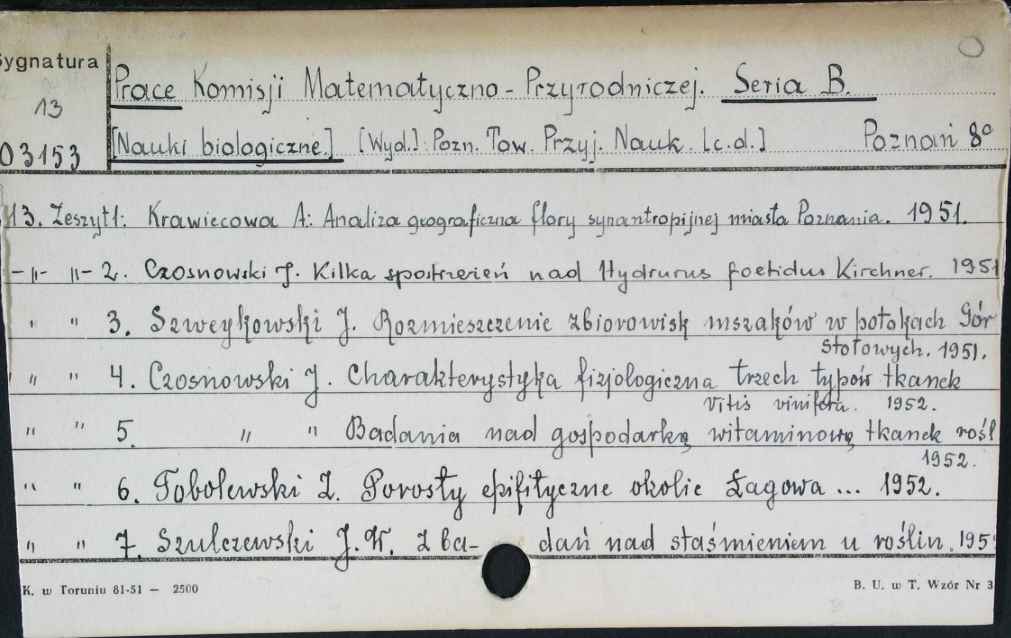 Sygnatura
Prace Komisji Matematyczno-Przyrodniczej. Seria B.
13
[Nauki biologiczne] [Wyd.] Pozn. Tow. Przyj. Nauk. [c.d.] Poznań 8°
03153
13. Zeszyt 1: Krawiecowa A: Analiza geograficzna flory synantropijnej miasta Poznania. 1951.
-"- "- 2. Czosnowski J. Kilka spostrzeień nad Hydrurus foetidus Kirchner. 1951
" " 3. Szweykowski J. Rozmieszczenie zbiorowisk mszaków w potokach Gór
Stołowych. 1951.
" " 4. Czosnowski J. Charakterystyka fizjologiczna trzech typów tkanek
Vitis vinifera. 1952.
" " 5. " " Badania nad gospodarką witaminową tkanek rośl
1952.
" " 6. Tobolewski Z. Porosty epifityczne okolic Łagowa ... 1952.
" " 7. Szulczewski J. W. Z ba- dań nad staśmieniem u roślin. 195
K. w Toruniu 81-51 — 2500
B. U. w T. Wzór Nr 3